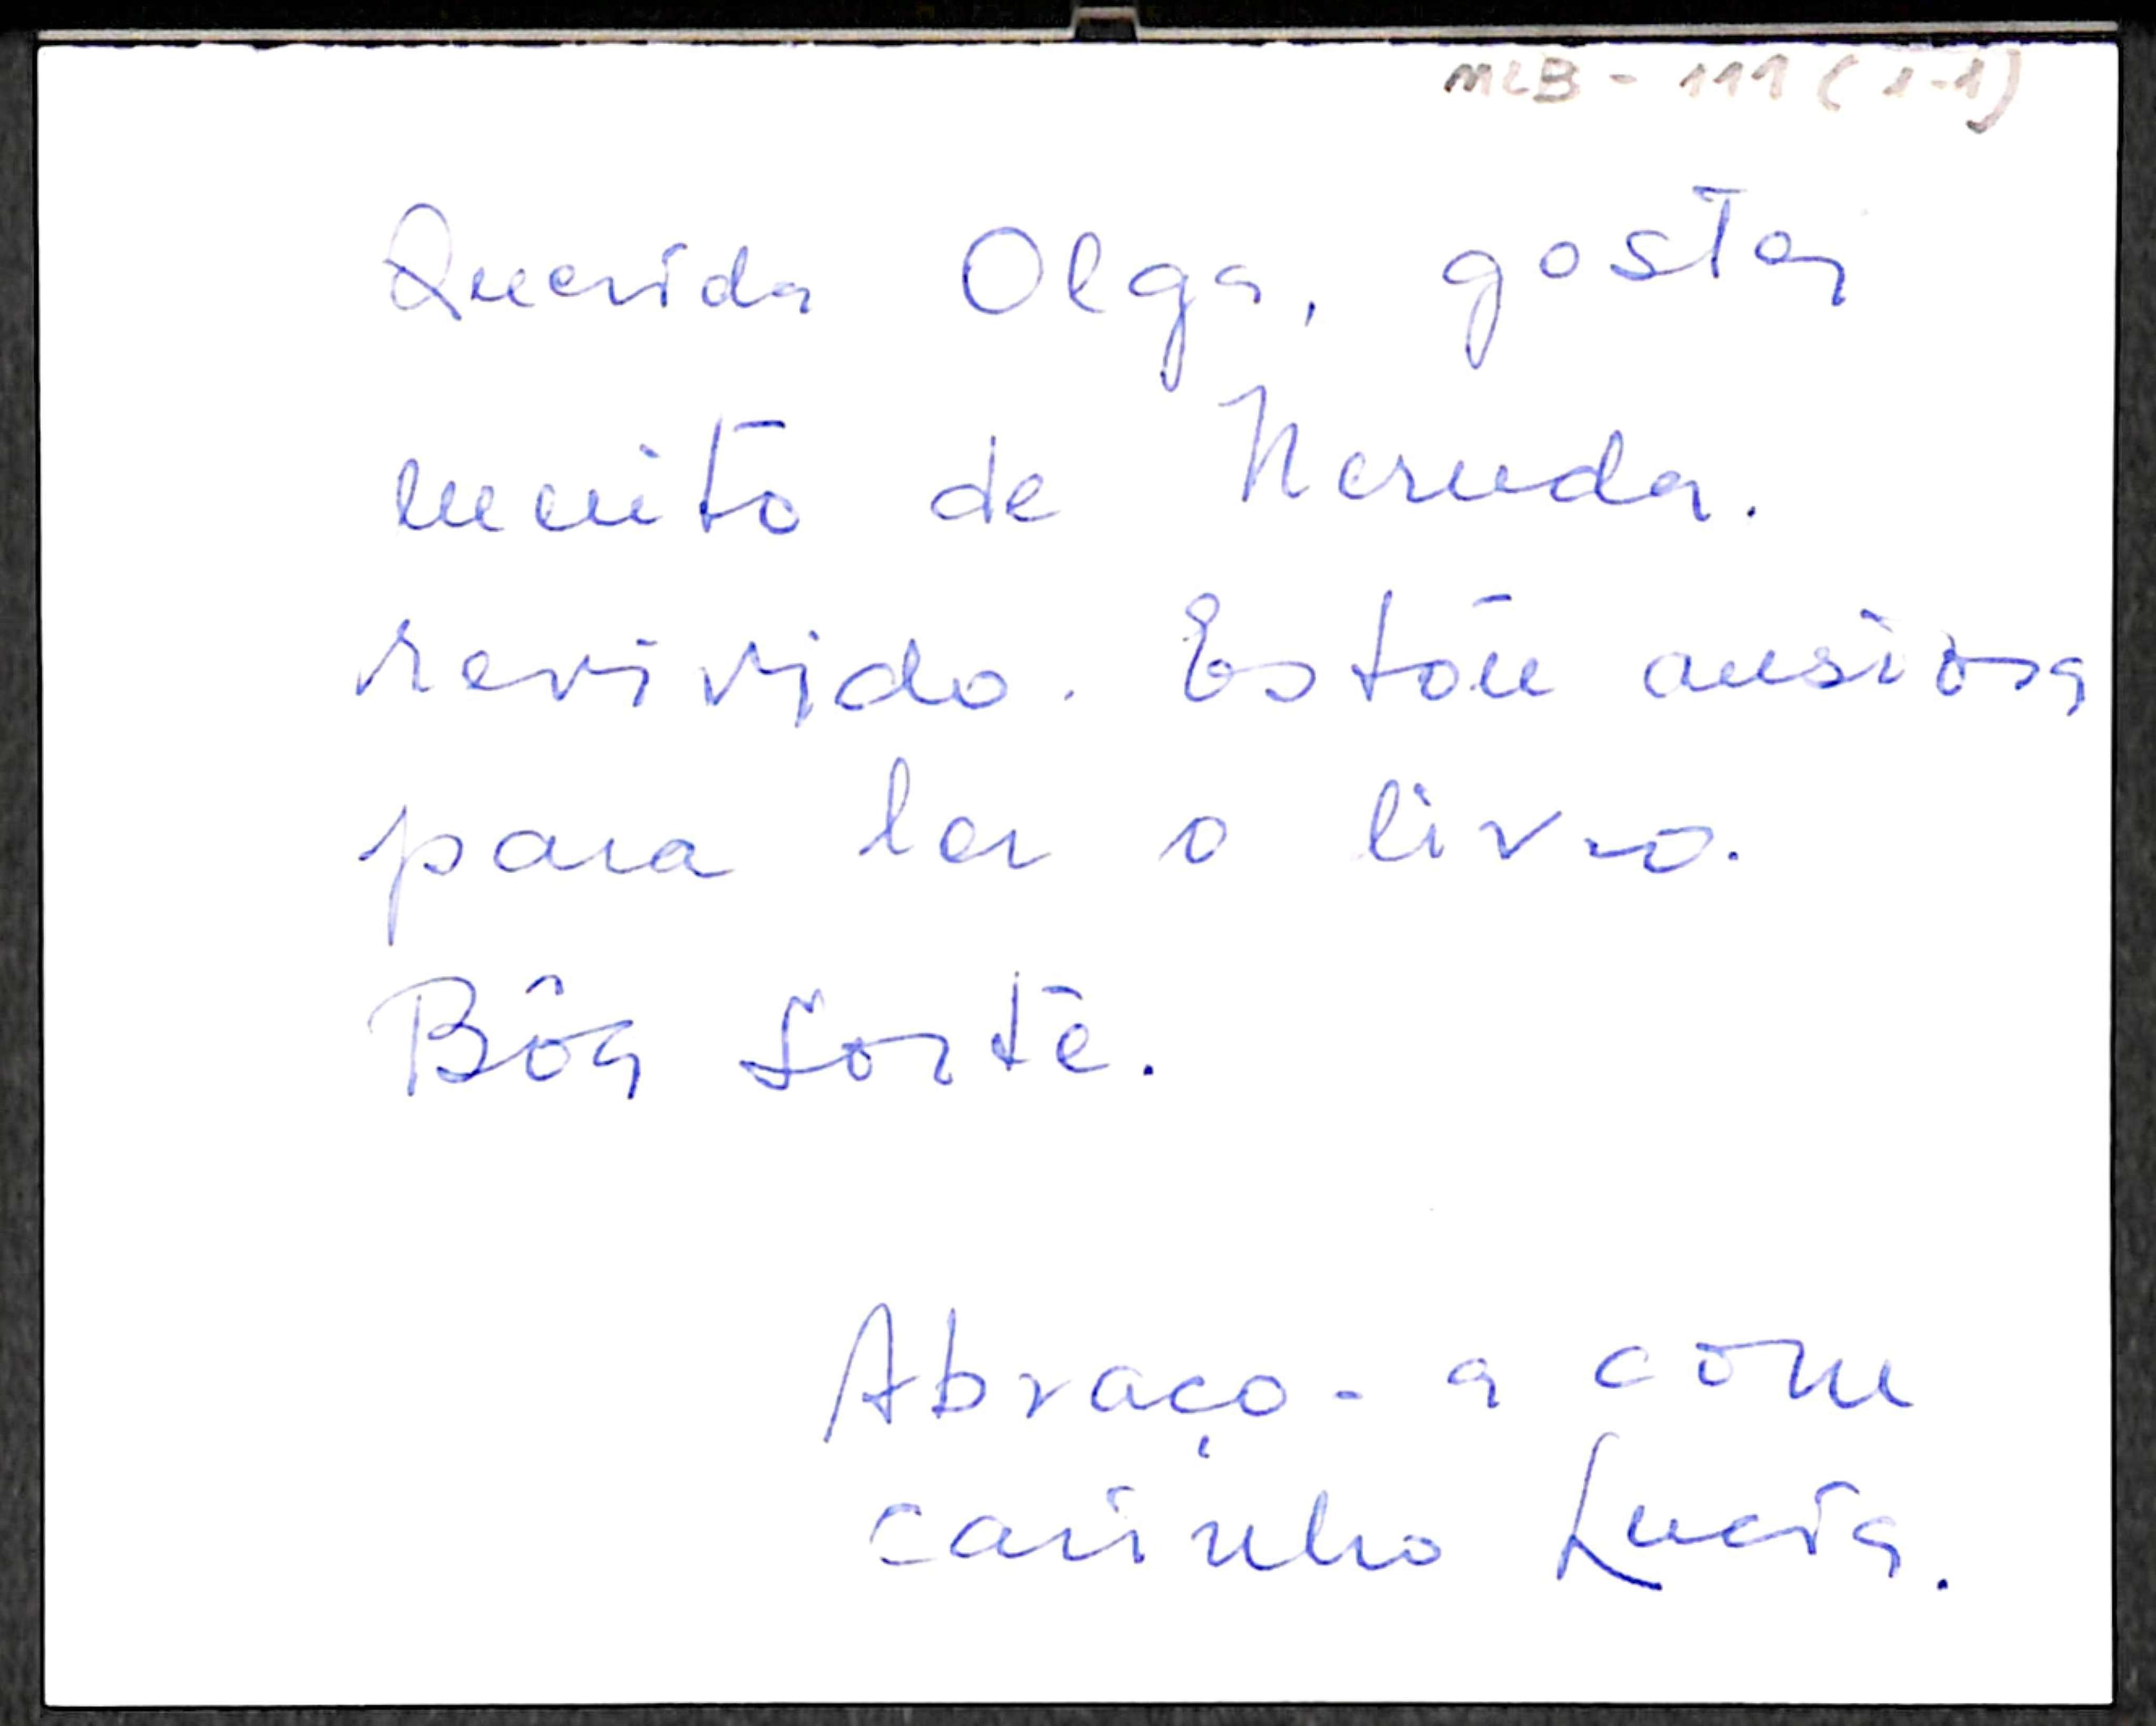 MLB - 111 (1-1)
Querida Olga, gostei
muito de Neruda.
revivido. Estou ansiosa
para ler o livro.
Bôa Sorte.
Abraço-a com
carinho Lucia.